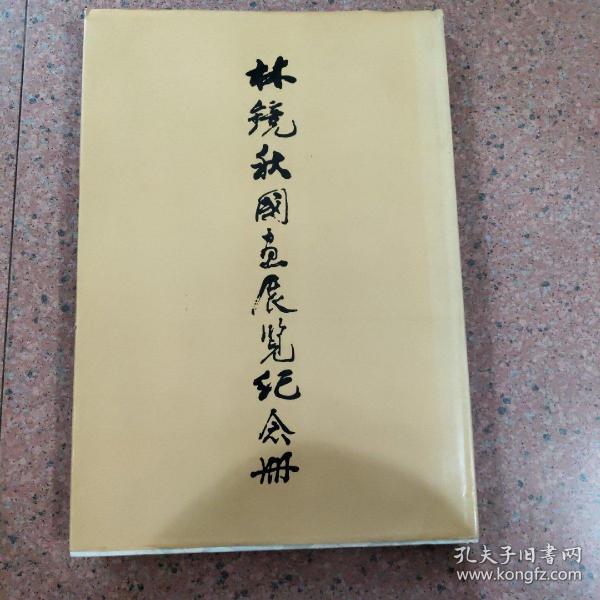 林镜秋國畫展览纪念册
孔夫子旧书网
www.kongfz.com